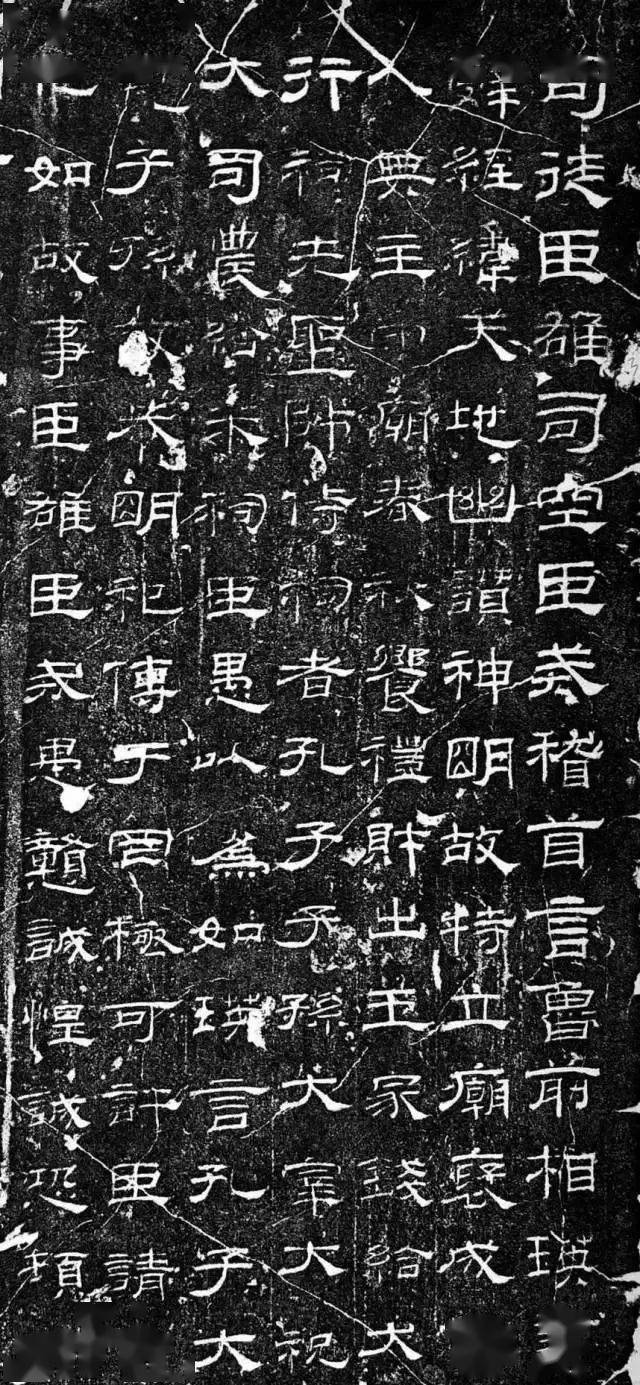 司徒臣雄司空臣戒稽首言魯前相瑛
辭經緯天地幽讚神明故特立廟褒成
人典主守廟春秋饗禮財出王家錢給大
行祠先聖師侍祠者孔子子孫大宰大祝
大司農給米祠臣愚以為如瑛言孔子大
子孫敬恭明祀傳于罔極可許臣請
他如故事臣雄臣戒愚戇誠惶誠恐頓